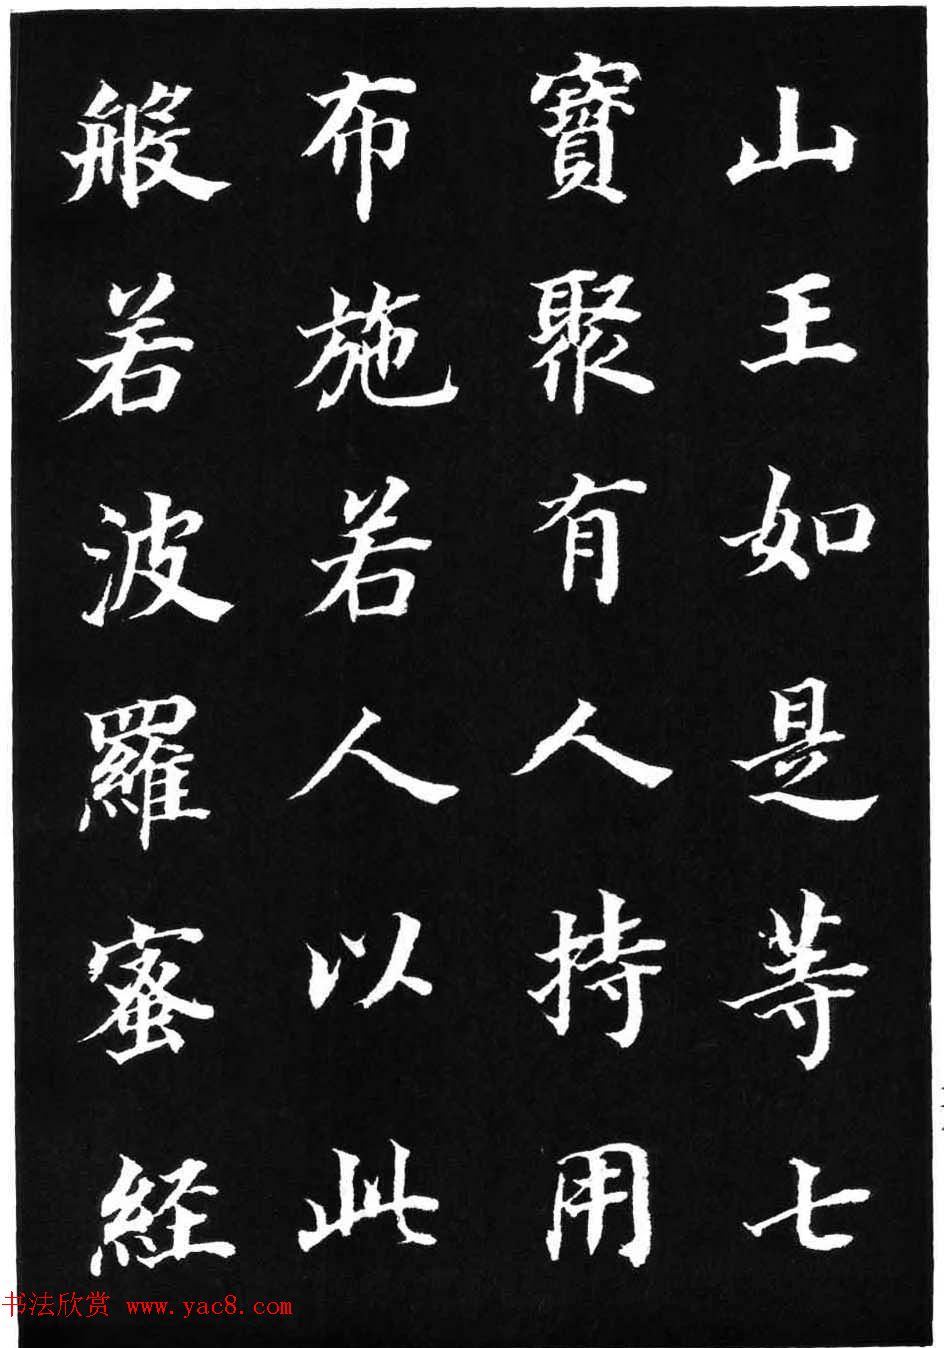 山王如是等七
寶聚有人持用
布施若人以此
般若波羅蜜経
书法欣赏 www.yac8.com